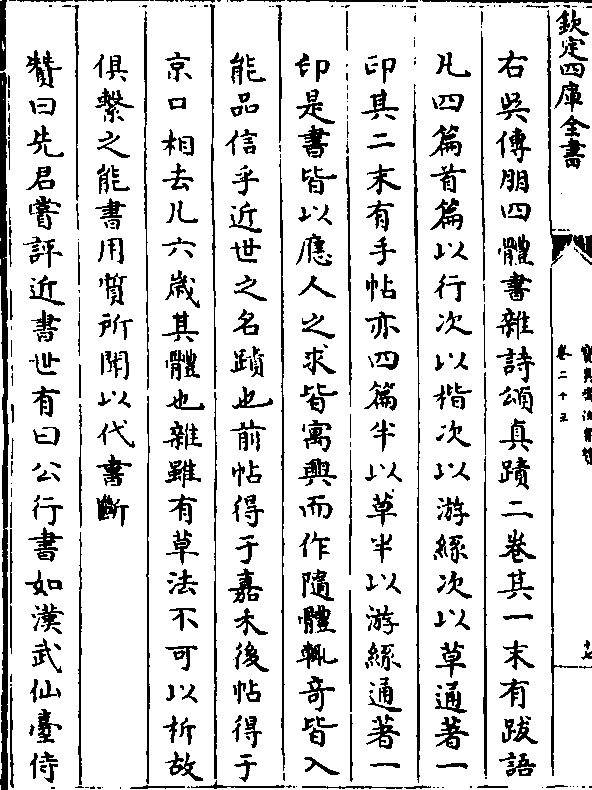 欽定四庫全書
卷二十五
右吳傅朋四體書雜詩頌真蹟二卷其一末有跋語
凡四篇首篇以行次以楷次以游絲次以草通著一
印其二末有手帖亦四篇半以草半以游絲通著一
印是書皆以應人之求皆寓興而作隨體輒竒皆入
能品信乎近世之名蹟也前帖得于嘉禾後帖得于
京口相去凡六歲其體也雜雖有草法不可以析故
俱繫之能書用質所聞以代書斷
贊曰先君嘗評近書世有曰公行書如漢武仙臺侍